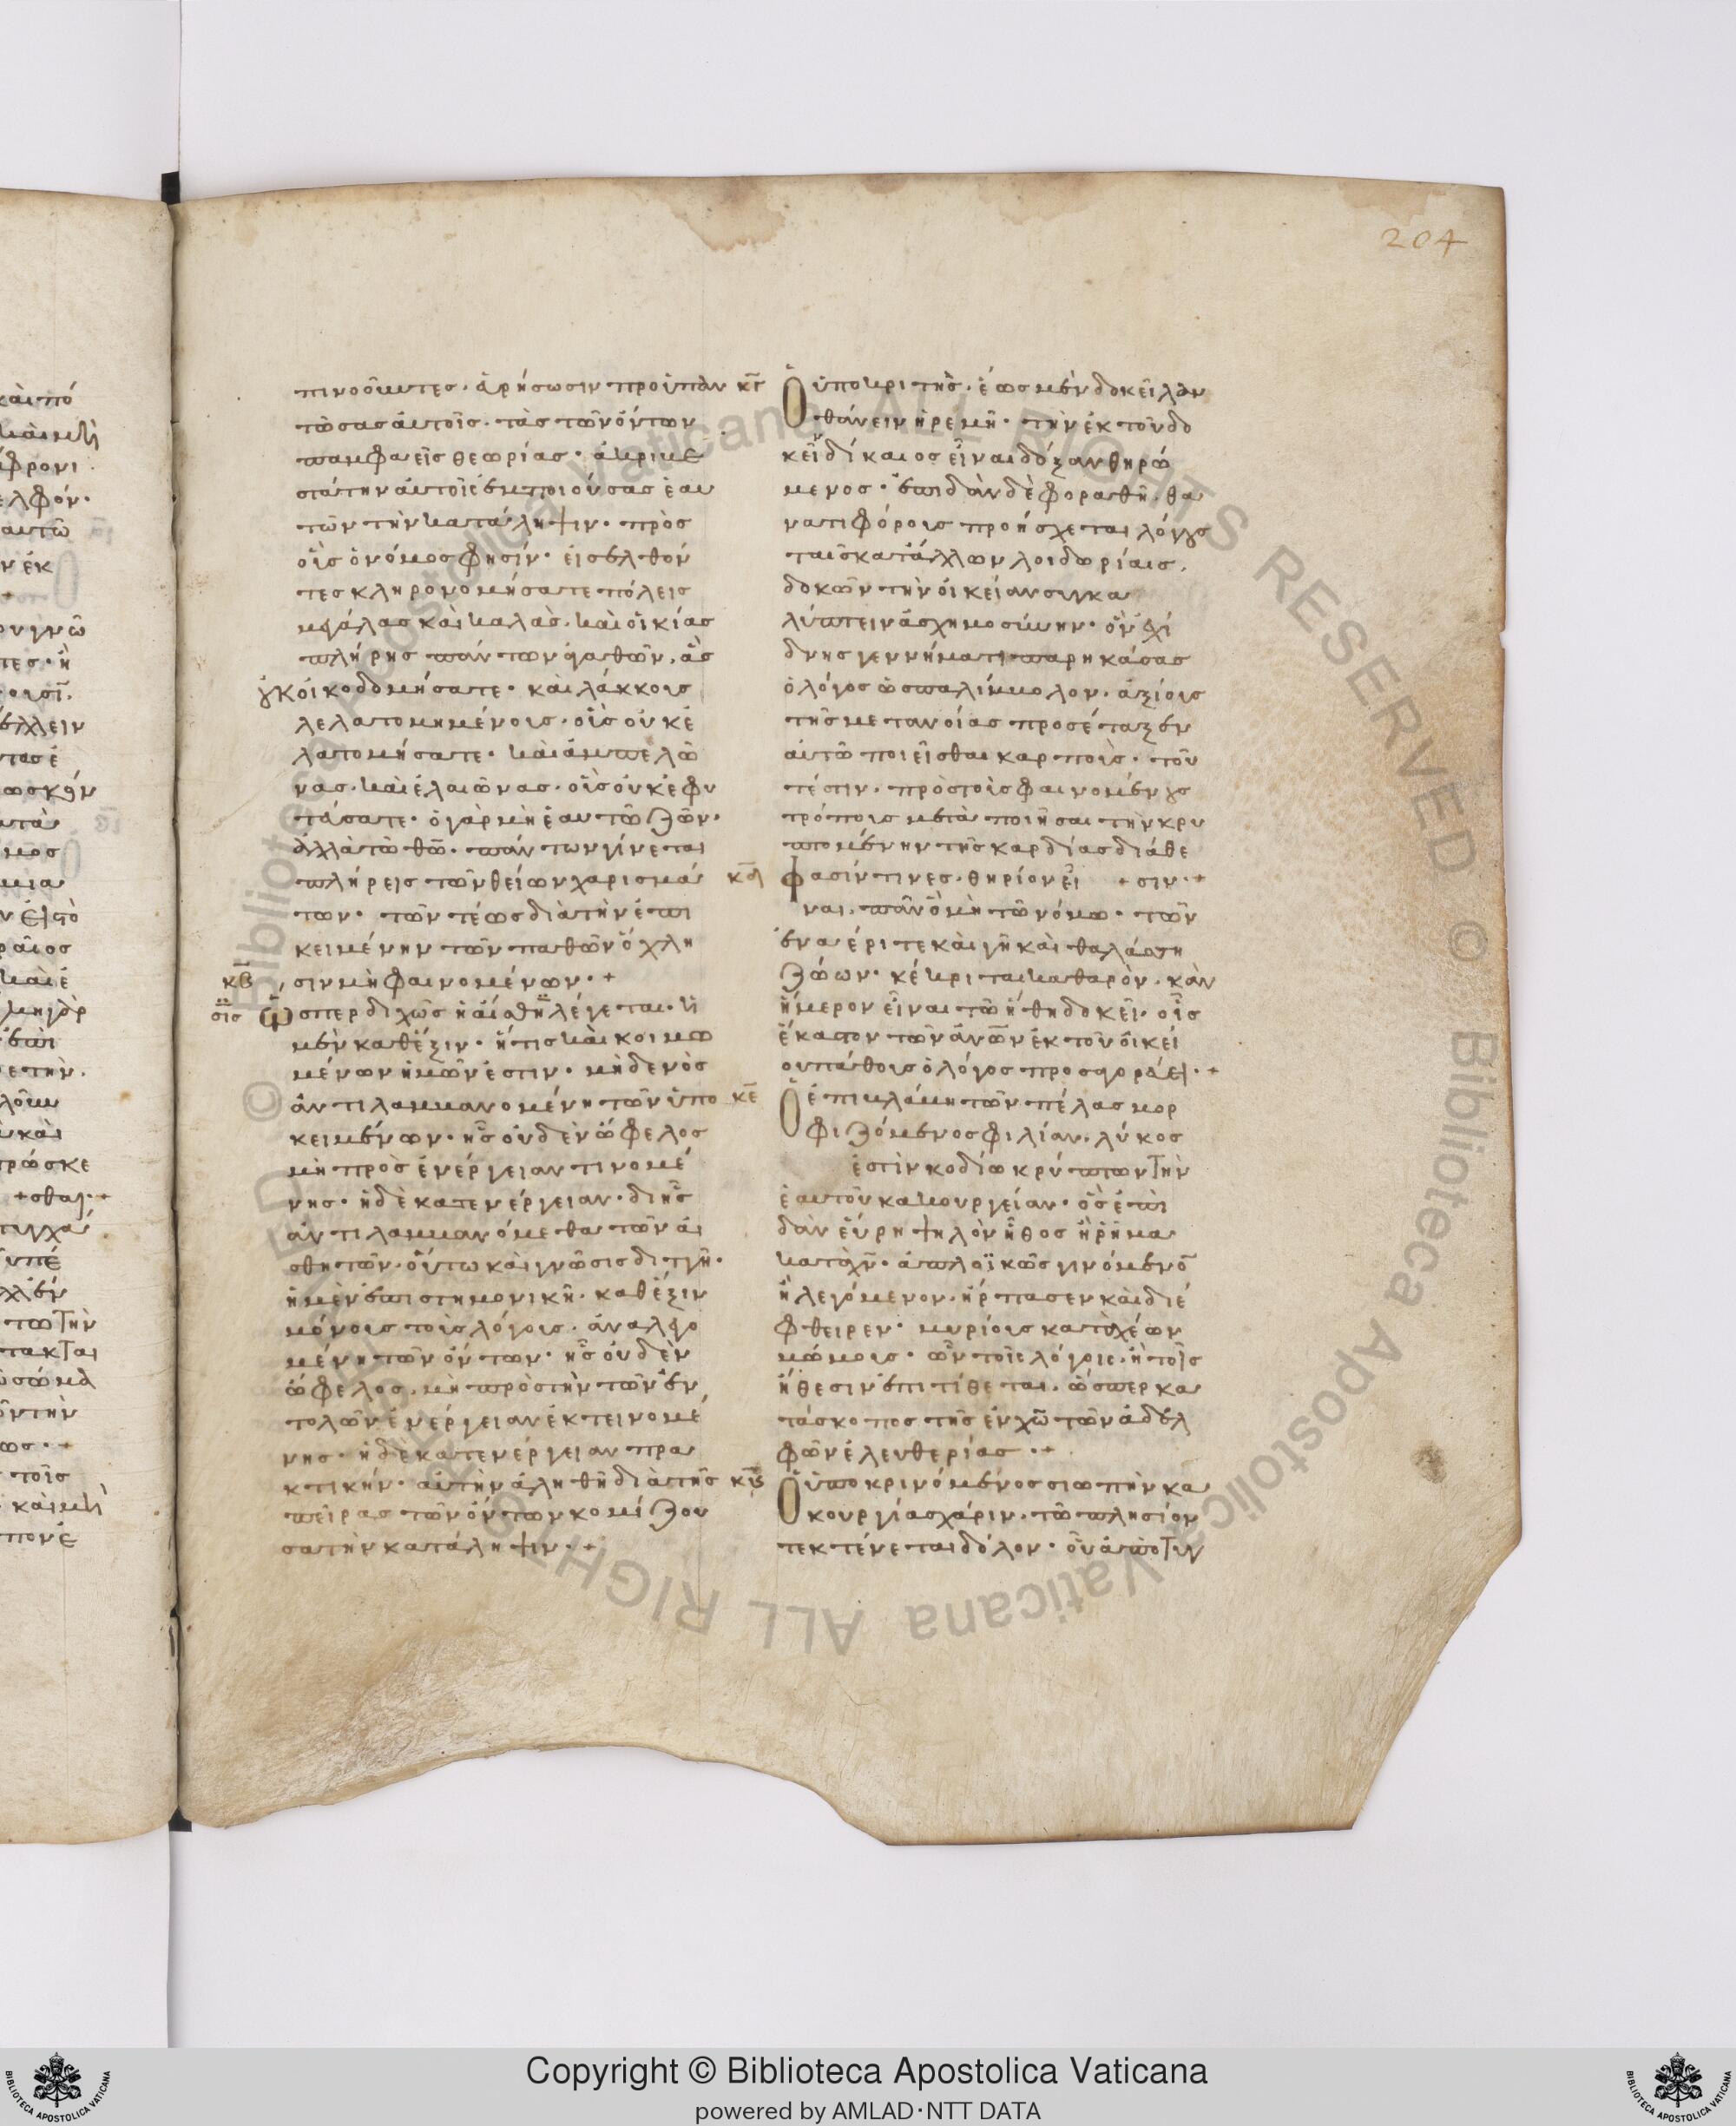 204
πινοοῦντες· ἀρήσωσιν προϋπαν
τώσας αὐτοῖς· τὰς τῶν ὄντων
παμφαεῖς θεωρίας· ἀκριβε
στάτην αὐτοῖς ἐμποιούσας ἑαυ
τῶν τὴν κατάληψιν· πρὸς
οἷς ὁ νόμος φησίν· εἰσελθόν
τες κληρονομήσατε πόλεις
μεγάλας καὶ καλὰς· καὶ οἰκίας
πλήρης πάντων ἀγαθῶν, ἃς
οὐκ οἰκοδομήσατε· καὶ λάκκους
λελατομημένους· οἷς οὐκ ἐ
λατομήσατε· καὶ ἀμπελῶ
νας· καὶ ἐλαιῶνας· οἷς οὐκ ἐφυ
τεύσατε· ὁ γὰρ μὴ ἑαυτῷ ζῶν·
ἀλλὰ τῷ θῶ· πάντων γίνεται
πλήρεις τῶν θείων χαρισμά
των· τῶν τέως διὰ τὴν ἐπι
κειμένην τῶν παθῶν ὄχλη
σιν μὴ φαινομένων· +
κβ
Ὥσπερ διχῶς ἡ αἴσθησις λέγεται· ἡ
μὲν καθ' ἕξιν· ἥτις καὶ κοιμω
μένων ἡμῶν ἐστιν· μηδενὸς
ἀντιλαμβανομένη τῶν ὑπο
κειμένων· ἧς οὐδὲν ὄφελος
μὴ πρὸς ἐνέργειαν τινομέ
νης· ἡ δὲ κατ' ενέργειαν· δι' ἧς
ἀντιλαμβανόμεθα τῶν αἰ
σθητῶν· οὕτω καὶ γνῶσις διττή·
ἡ μὲν ἐπιστημονικὴ· καθ' ἕξιν
μόνους τοὺς λόγους· ἀναλεγο
μένη τῶν ὄντων· ἧς οὐδὲν
ὄφελος· μὴ πρὸς τὴν τῶν ἐν
τολῶν ἐνέργειαν ἐκτεινομέ
νης· ἡ δὲ κατ' ενέργειαν πρα
κτικήν· αὐτὴν ἀληθῆ διὰ τῆς
πείρας τῶν ὄντων κομίζου
σα τὴν κατάληψιν· +
κγ
Ὁ ὑποκριτὴς· ἕως μὲν δοκεῖ λαν
θάνειν ἠρεμῆ· τὴν ἐκ τοῦ δο
κεῖν δίκαιος εἶναι δόξαν θηρώ
μενος· ἐπειδὰν δὲ φοραθῆ· θα
νατιφόρους προήσχεται λόγους
ταῖς κατ' ἄλλων λοιδωρίαις·
δοκῶν τὴν οἰκείαν συγκα
λύπτειν ἀσχημοσύνην· ὃν ἐχί
δνης γεννήματι παρηκάσας
ὁ λόγος ὡς παλίμβολον· ἀξίους
τῆς μετανοίας προσέταξεν
αὐτῶ ποιεῖσθαι καρποὺς· τοῦ
τέστιν· πρὸς τοῖς φαινομένους
τρόπους μεταποιῆσαι τὴν κρυ
πτομένην τῆς καρδίας διάθε
+ σιν· +
κδ
Φασίν τινες· θηρίον εἶ
ναι· πᾶν ὃ μὴ τῶ νόμω· τῶν
ἐν ἀέρι τε καὶ γῆ καὶ θαλάσση
ζώων· κέκριται καθαρὸν· κἂν
ἥμερον εἶναι τῶ ἤθη δοκεῖ· οἷς
ἕκαστον τῶν ἀνων ἐκ τοῦ οἰκεί
ου πάθους ὁ λόγος προσαγορεύει· +
κε
Ὁ ἐπι βλάβη τῶν πέλας μορ
φιζόμενος φιλίαν· λύκος
ἐστὶν κοδίω κρύπτων τὴν
ἑαυτοῦ κακουργείαν· ὃς ἐπει
δὰν εὕρη ψιλὸν ἦθος ἢ ῥῆμα
κατὰ χν· ἁπλοϊκῶς γινόμενον
ἢ λεγόμενον· ἥρπασεν καὶ διέ
φθειρεν· μυρίους καταχέων
μώμους· ὧν τοῖς λόγοις· ἢ τοῖς
ἤθεσιν ἐπιτίθεται· ὥσπερ κα
τάσκοπος τῆς ἐν χω τῶν ἀδελ
φῶν ἐλευθερίας· +
κϛ
Ὁ ὑποκρινόμενος σιωπὴν κα
κουργίας χάριν· τῷ πλησίον
τεκτένεται δόλον· οὗ ἀποτυγ